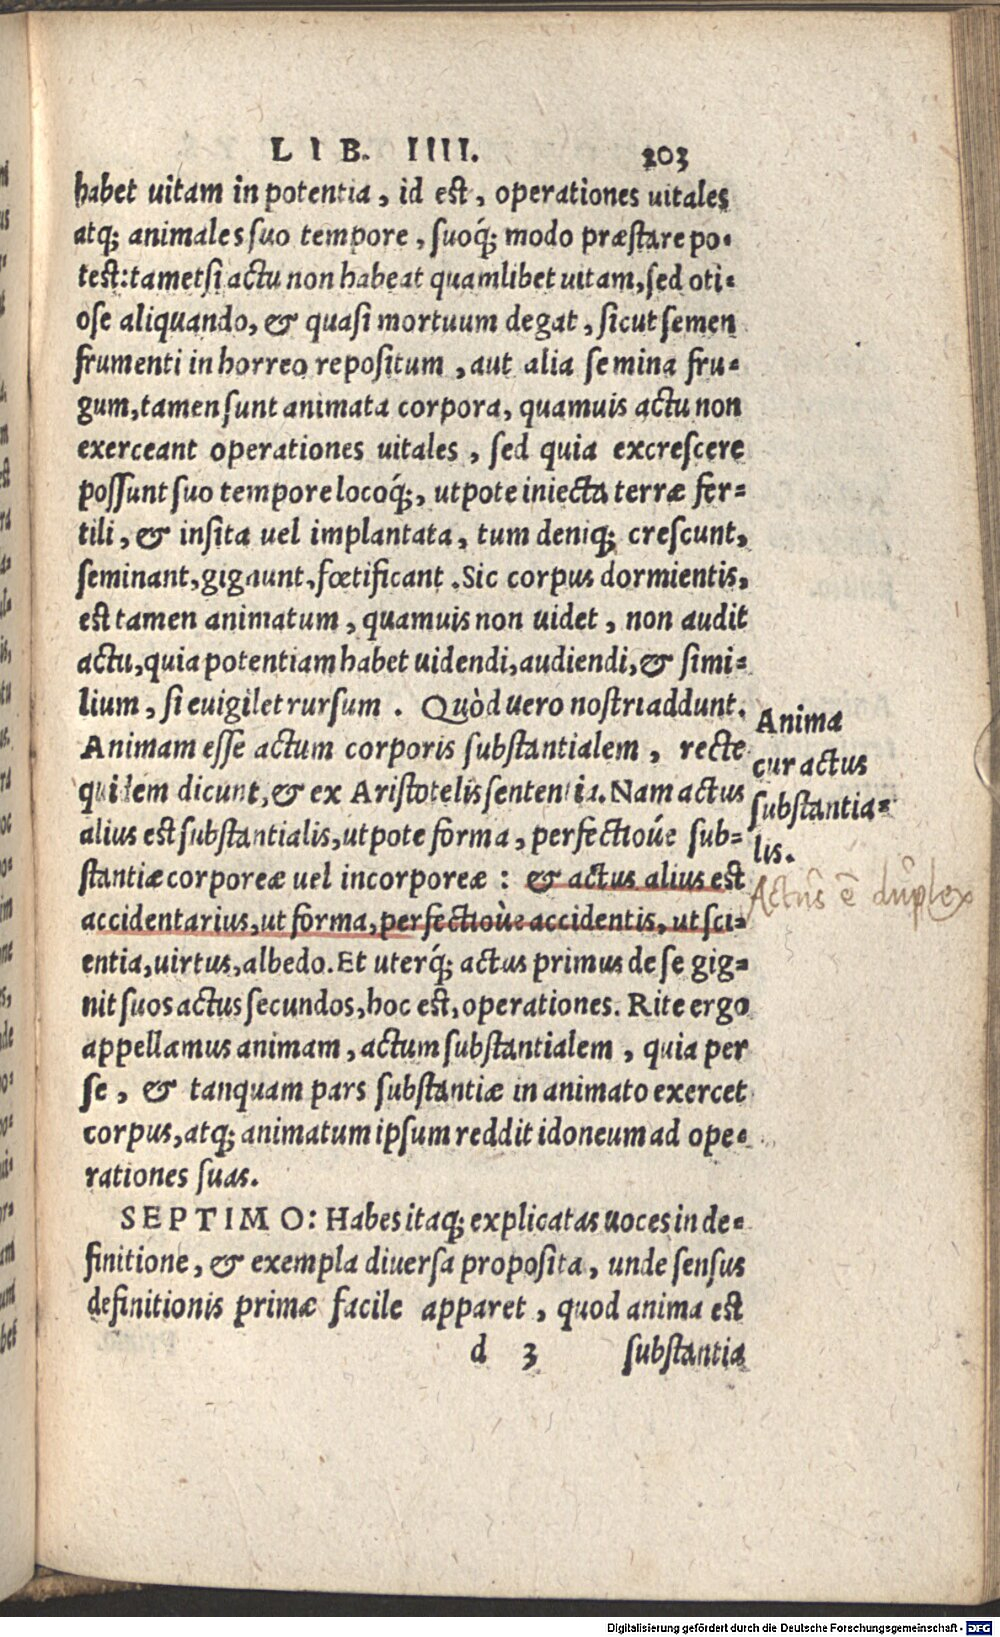 LIB. IIII. 203
habet uitam in potentia, id est, operationes uitales
atq; animales suo tempore, suoq́; modo præstare po-
test: tametsi actu non habeat quamlibet uitam, sed oti-
ose aliquando, & quasi mortuum degat, sicut semen
frumenti in horreo repositum, aut alia semina fru-
gum, tamen sunt animata corpora, quamuis actu non
exerceant operationes uitales, sed quia excrescere
possunt suo tempore locoq́;, utpote iniecta terræ fer-
tili, & insita uel implantata, tum deniq; crescunt,
seminant, gignunt, fœtificant. Sic corpus dormientis,
est tamen animatum, quamuis non uidet, non audit
actu, quia potentiam habet uidendi, audiendi, & simi-
lium, si euigilet rursum. Quòd uero nostri addunt.
Animam esse actum corporis substantialem, recte
quidem dicunt, & ex Aristotelis sententia. Nam actus
alius est substantialis, utpote forma, perfectioúe sub-
stantiæ corporeæ uel incorporeæ: & actus alius est
accidentarius, ut forma, perfectioùe accidentis, ut sci-
entia, uirtus, albedo. Et uterq́; actus primus de se gig-
nit suos actus secundos, hoc est, operationes. Rite ergo
appellamus animam, actum substantialem, quia per
se, & tanquam pars substantiæ in animato exercet
corpus, atq; animatum ipsum reddit idoneum ad ope-
rationes suas.
SEPTIMO: Habes itaq; explicatas uoces in de-
finitione, & exempla diuersa proposita, unde sensus
definitionis primæ facile apparet, quod anima est
d 3 substantia
Anima
cur actus
substantia-
lis.
Actus ē duplex
Digitalisierung gefördert durch die Deutsche Forschungsgemeinschaft - DFG